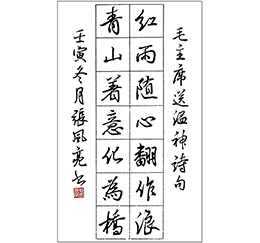 毛主席送温神诗句
红雨随心翻作浪
青山着意化为桥
壬寅冬月張風亮书